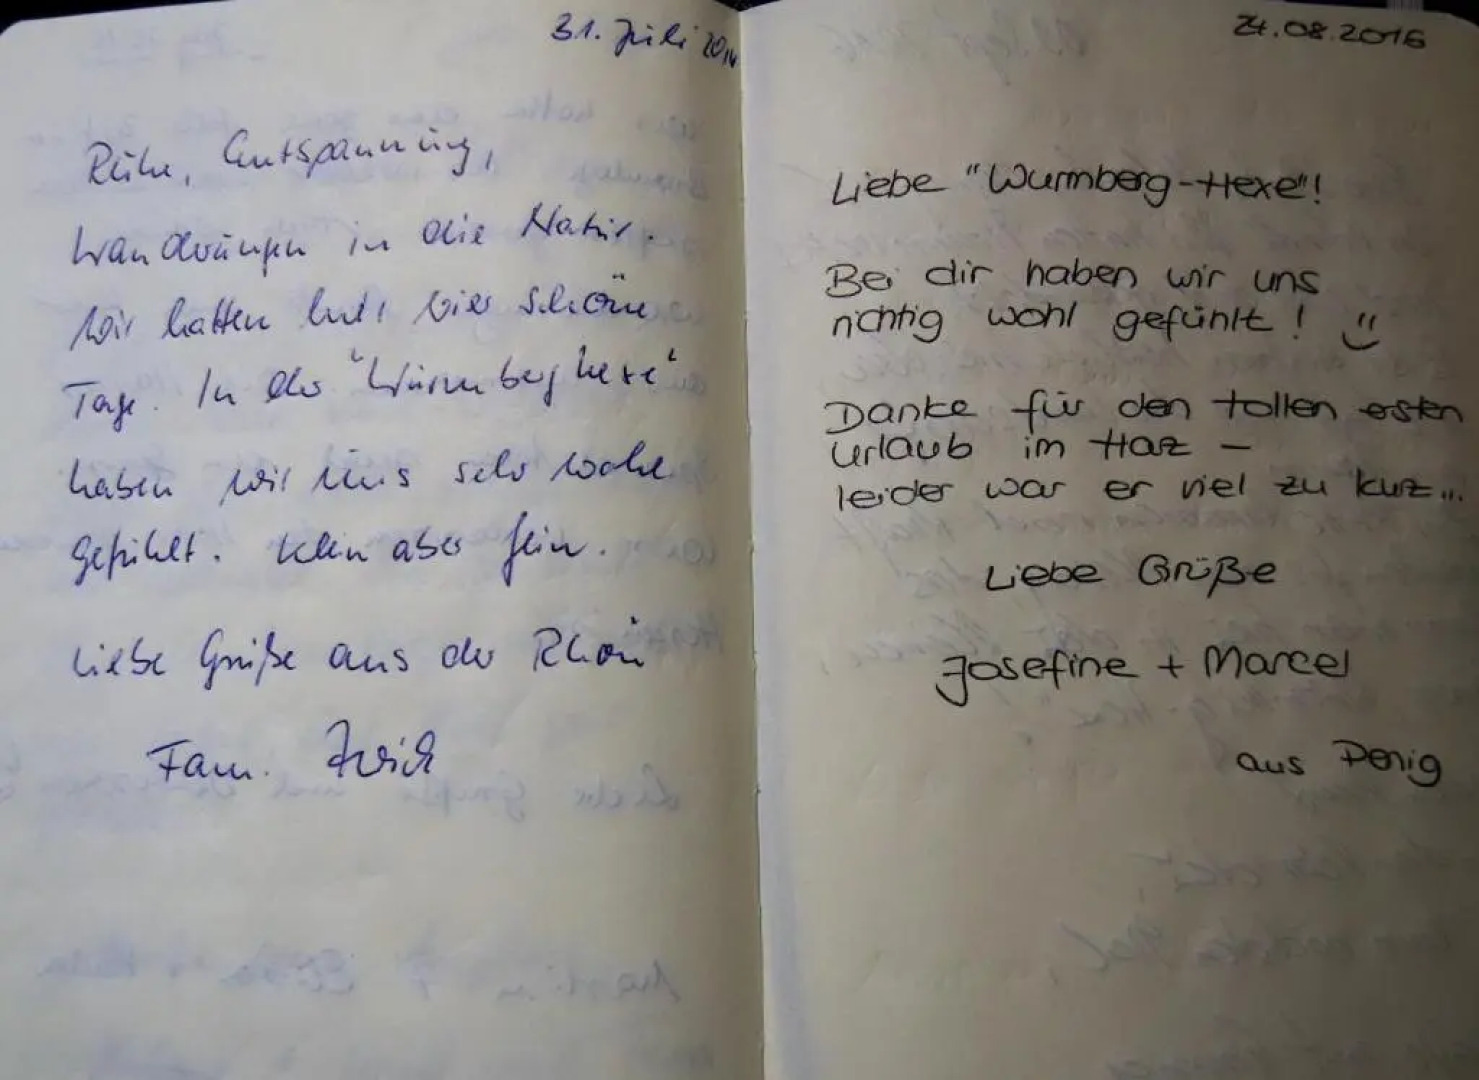 31. Juli 2016
Ruhe, Entspannung,
Wanderungen in die Natur.
Wir hatten hier vier schöne
Tage. In der "Wurmberghexe"
haben wir uns sehr wohl
gefühlt. Klein aber fein.
Liebe Grüße aus der Rhön
Fam.
24.08.2016
Liebe "Wurmberg-Hexe"!
Bei dir haben wir uns
richtig wohl gefühlt! :)
Danke für den tollen ersten
Urlaub im Harz –
leider war er viel zu kurz...
Liebe Grüße
Josefine + Marcel
aus Penig